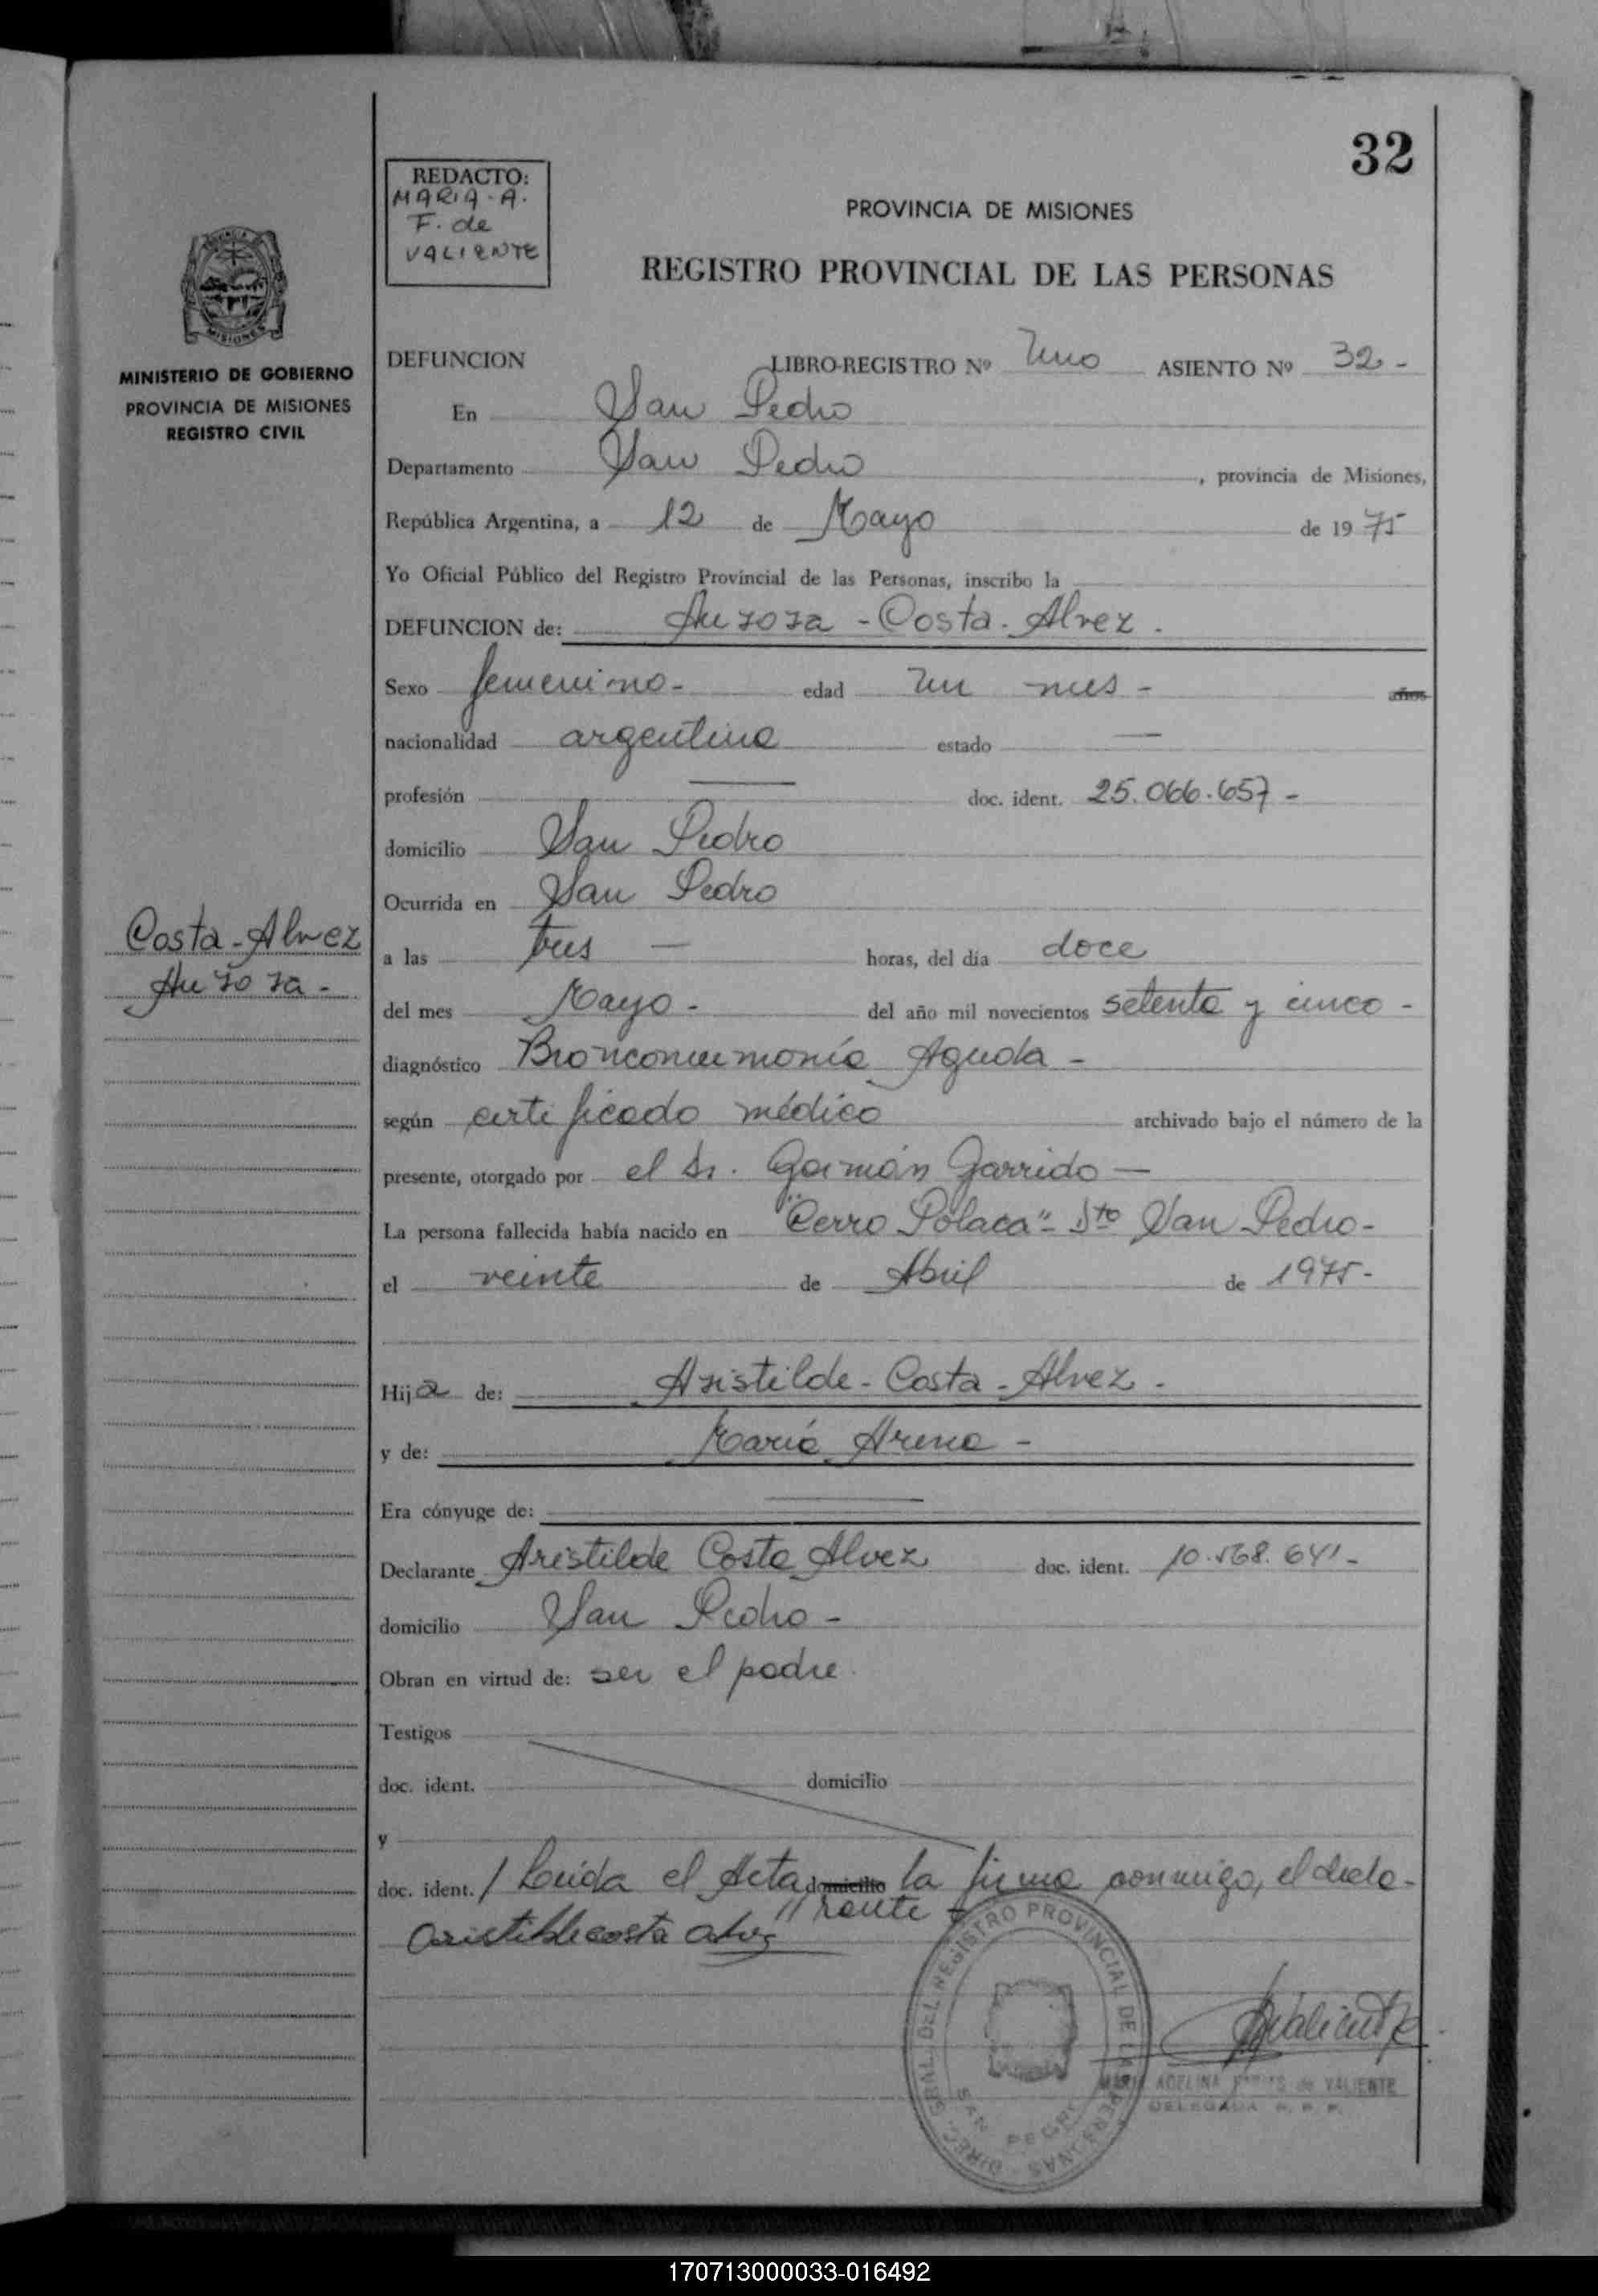 32
REDACTO:
MARIA - A.
F. de
VALIENTE
PROVINCIA DE MISIONES
REGISTRO PROVINCIAL DE LAS PERSONAS
MINISTERIO DE GOBIERNO
PROVINCIA DE MISIONES
REGISTRO CIVIL
DEFUNCION LIBRO-REGISTRO Nº Uno ASIENTO Nº 32 -
En San Pedro
Departamento San Pedro , provincia de Misiones,
República Argentina, a 12 de Mayo de 1975
Yo Oficial Público del Registro Provincial de las Personas, inscribo la
DEFUNCION de: Aurora - Costa - Alvez -
Sexo femenino - edad un mes - años
nacionalidad argentina estado —
profesión — doc. ident. 25.066.657 -
domicilio San Pedro
Ocurrida en San Pedro
Costa - Alvez
Aurora -
a las tres — horas, del día doce
del mes Mayo - del año mil novecientos setenta y cinco -
diagnóstico Bronconeumonía Aguda -
según certificado médico archivado bajo el número de la
presente, otorgado por el Dr. Garrido —
La persona fallecida había nacido en "Cerro Polaca" - Dto San Pedro -
el veinte de Abril de 1975 -
Hija de: Aristilde - Costa - Alvez -
y de: María Arena -
Era cónyuge de: —
Declarante Aristilde Costa Alvez doc. ident. 10.568.641 -
domicilio San Pedro -
Obran en virtud de: ser el padre.
Testigos
doc. ident. domicilio
y
doc. ident. / Leida el Acta domicilio la firma conmigo, el decla-
rante -
aristilde costa alvez
DIREC. GRAL. DEL REGISTRO PROVINCIAL DE LAS PERSONAS
SAN PEDRO
Valiente
MARIA ADELINA de VALIENTE
DELEGADA R. P. P.
170713000033-016492